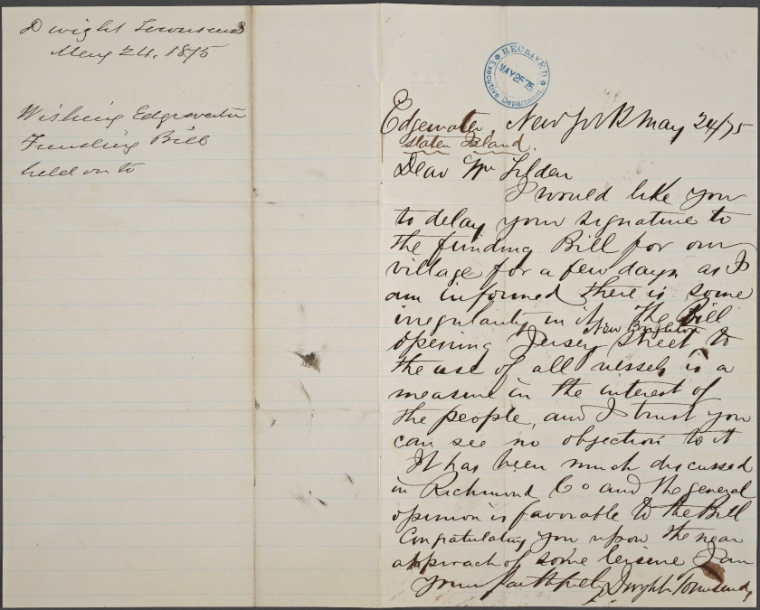 Dwight Townsend
May 24, 1875
Wishing Edgewater
Funding Bill
held on to
RECEIVED
MAY 25 75
Executive Department
Edgewater, New York May 24/75
Staten Island.
Dear Mr Tilden
I would like you
to delay your signature to
the funding Bill for our
village for a few days as I
am informed there is some
irregularity in it. The Bill
New Brighton
opening Jersey Street to
the use of all vessels is a
measure in the interest of
the people, and I trust you
can see no objection to it
It has been much discussed
in Richmond Co and the general
opinion is favorable to the Bill
Congratulating you upon the near
approach of some leisure I am
Yours faithfully Dwight Townsend